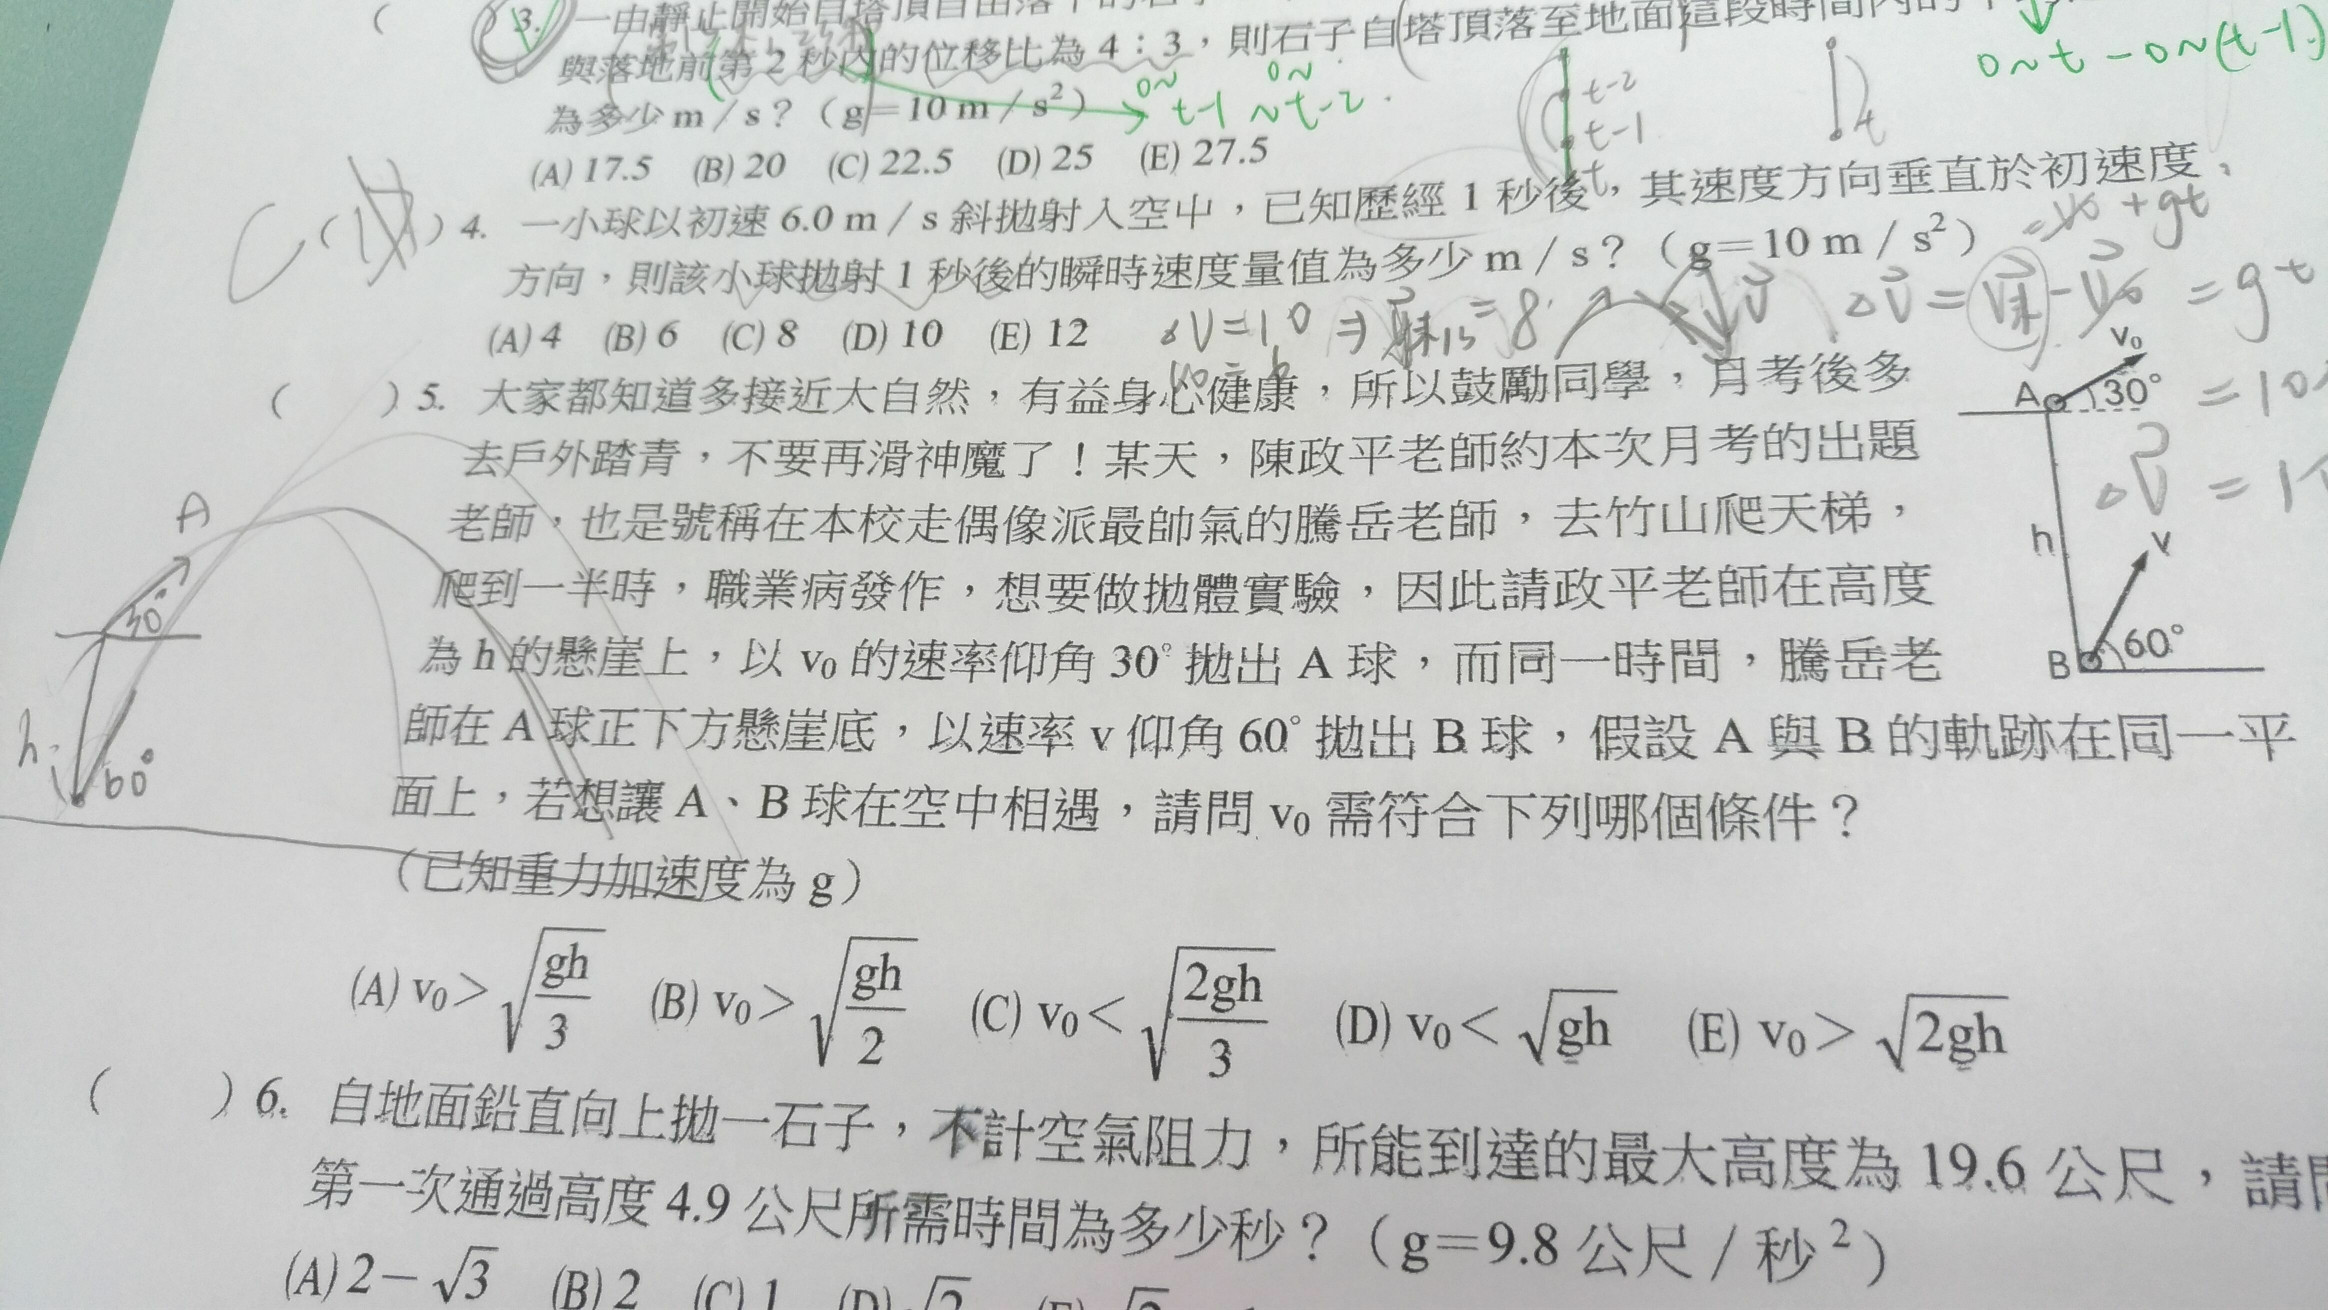 3. 一由靜止開始自塔頂自由落下的石
與落地前第 2 秒內的位移比為 4：3，則石子自塔頂落至地面這段時間內的
為多少 m／s？（g＝10 m／s²）
(A) 17.5 (B) 20 (C) 22.5 (D) 25 (E) 27.5
0～t－0～(t-1)
0～ 0～
t-1 ～t-2
t-2
t-1
t
t
C
( ) 4. 一小球以初速 6.0 m／s 斜拋射入空中，已知歷經 1 秒後，其速度方向垂直於初速度
方向，則該小球拋射 1 秒後的瞬時速度量值為多少 m／s？（g＝10 m／s²）
(A) 4 (B) 6 (C) 8 (D) 10 (E) 12
( ) 5. 大家都知道多接近大自然，有益身心健康，所以鼓勵同學，月考後多
去戶外踏青，不要再滑神魔了！某天，陳政平老師約本次月考的出題
老師，也是號稱在本校走偶像派最帥氣的騰岳老師，去竹山爬天梯，
爬到一半時，職業病發作，想要做拋體實驗，因此請政平老師在高度
為 h 的懸崖上，以 v₀ 的速率仰角 30° 拋出 A 球，而同一時間，騰岳老
師在 A 球正下方懸崖底，以速率 v 仰角 60° 拋出 B 球，假設 A 與 B 的軌跡在同一平
面上，若想讓 A、B 球在空中相遇，請問 v₀ 需符合下列哪個條件？
（已知重力加速度為 g）
v₀
A 30°
h
v
B 60°
A
30°
h
60°
(A) v₀＞√(gh/3) (B) v₀＞√(gh/2) (C) v₀＜√(2gh/3) (D) v₀＜√gh (E) v₀＞√2gh
( ) 6. 自地面鉛直向上拋一石子，不計空氣阻力，所能到達的最大高度為 19.6 公尺，請
第一次通過高度 4.9 公尺所需時間為多少秒？（g＝9.8 公尺／秒²）
(A) 2－√3 (B) 2 (C) 1 (D) √2